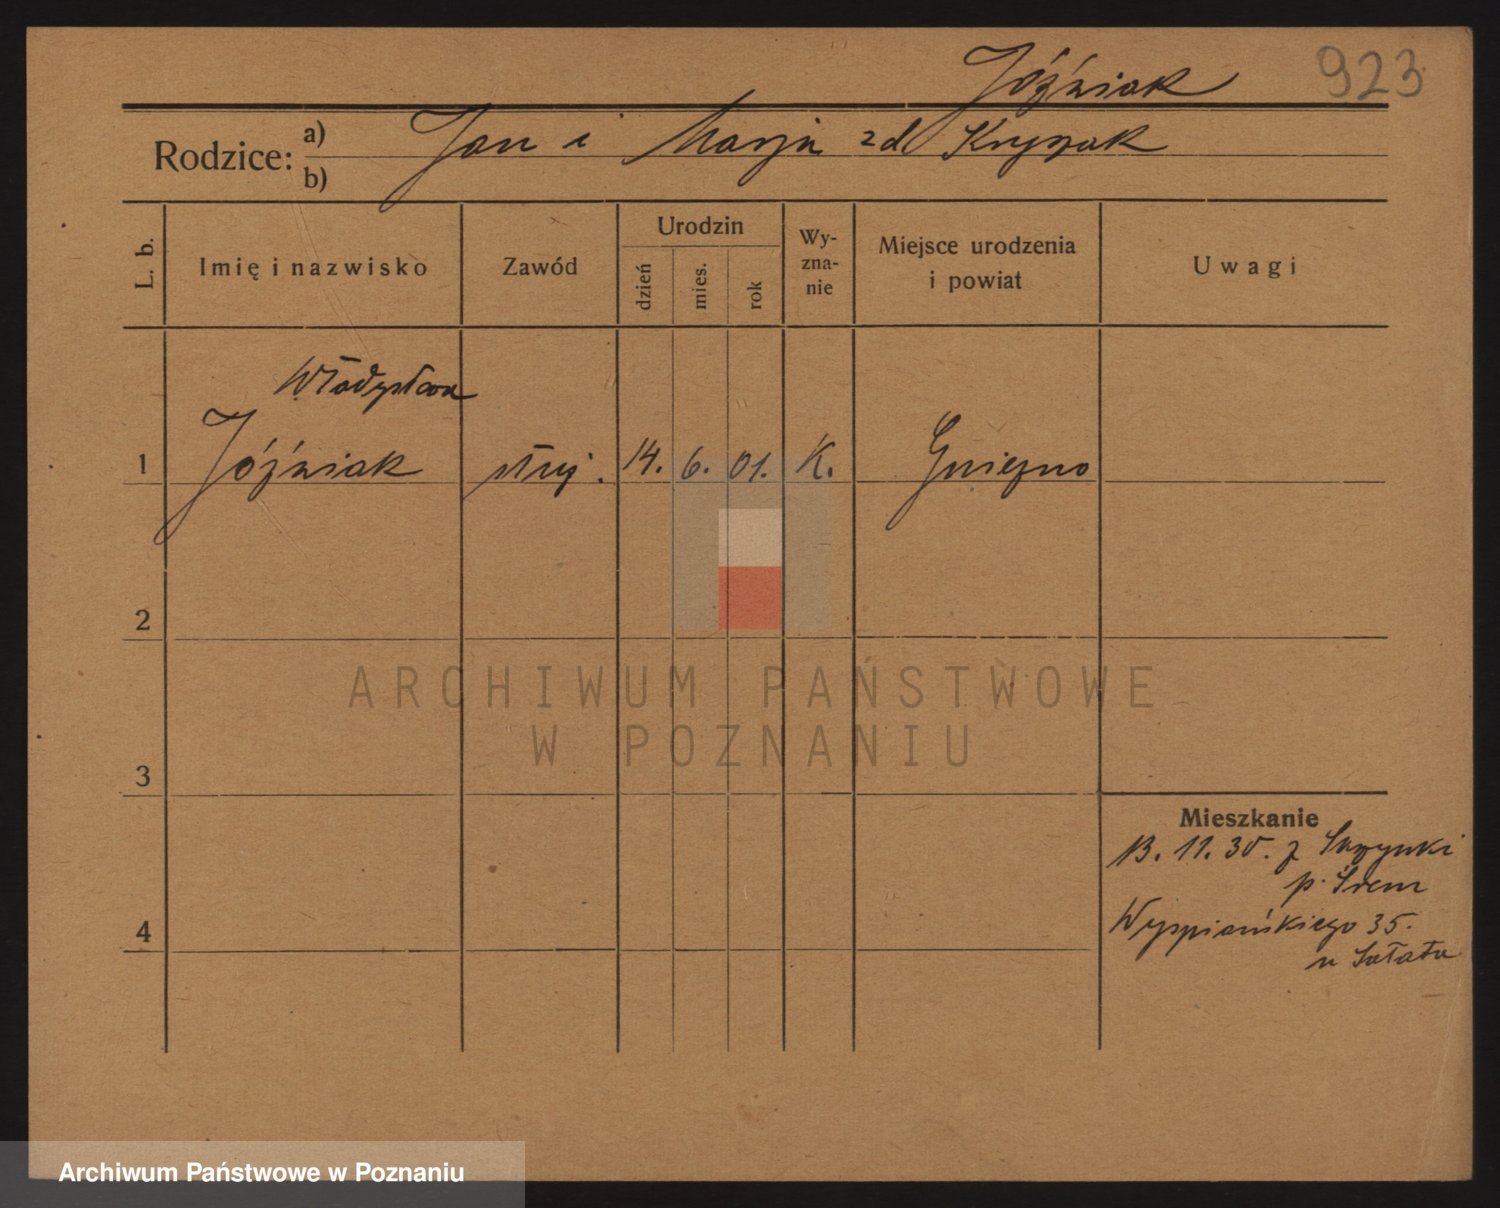 Jóźwiak 923
Rodzice: a) Jan i Marja zd Kryszak
b)
L. b.
Imię i nazwisko
Zawód
Urodzin
dzień
mies.
rok
Wy-
zna-
nie
Miejsce urodzenia
i powiat
Uwagi
Władysława
1 Jóźwiak służ. 14. 6. 01. K. Gniezno
2
3
4
Mieszkanie
13. 11. 30. z
p. Śrem
Wyspiańskiego 35.
u
ARCHIWUM PAŃSTWOWE
W POZNANIU
Archiwum Państwowe w Poznaniu